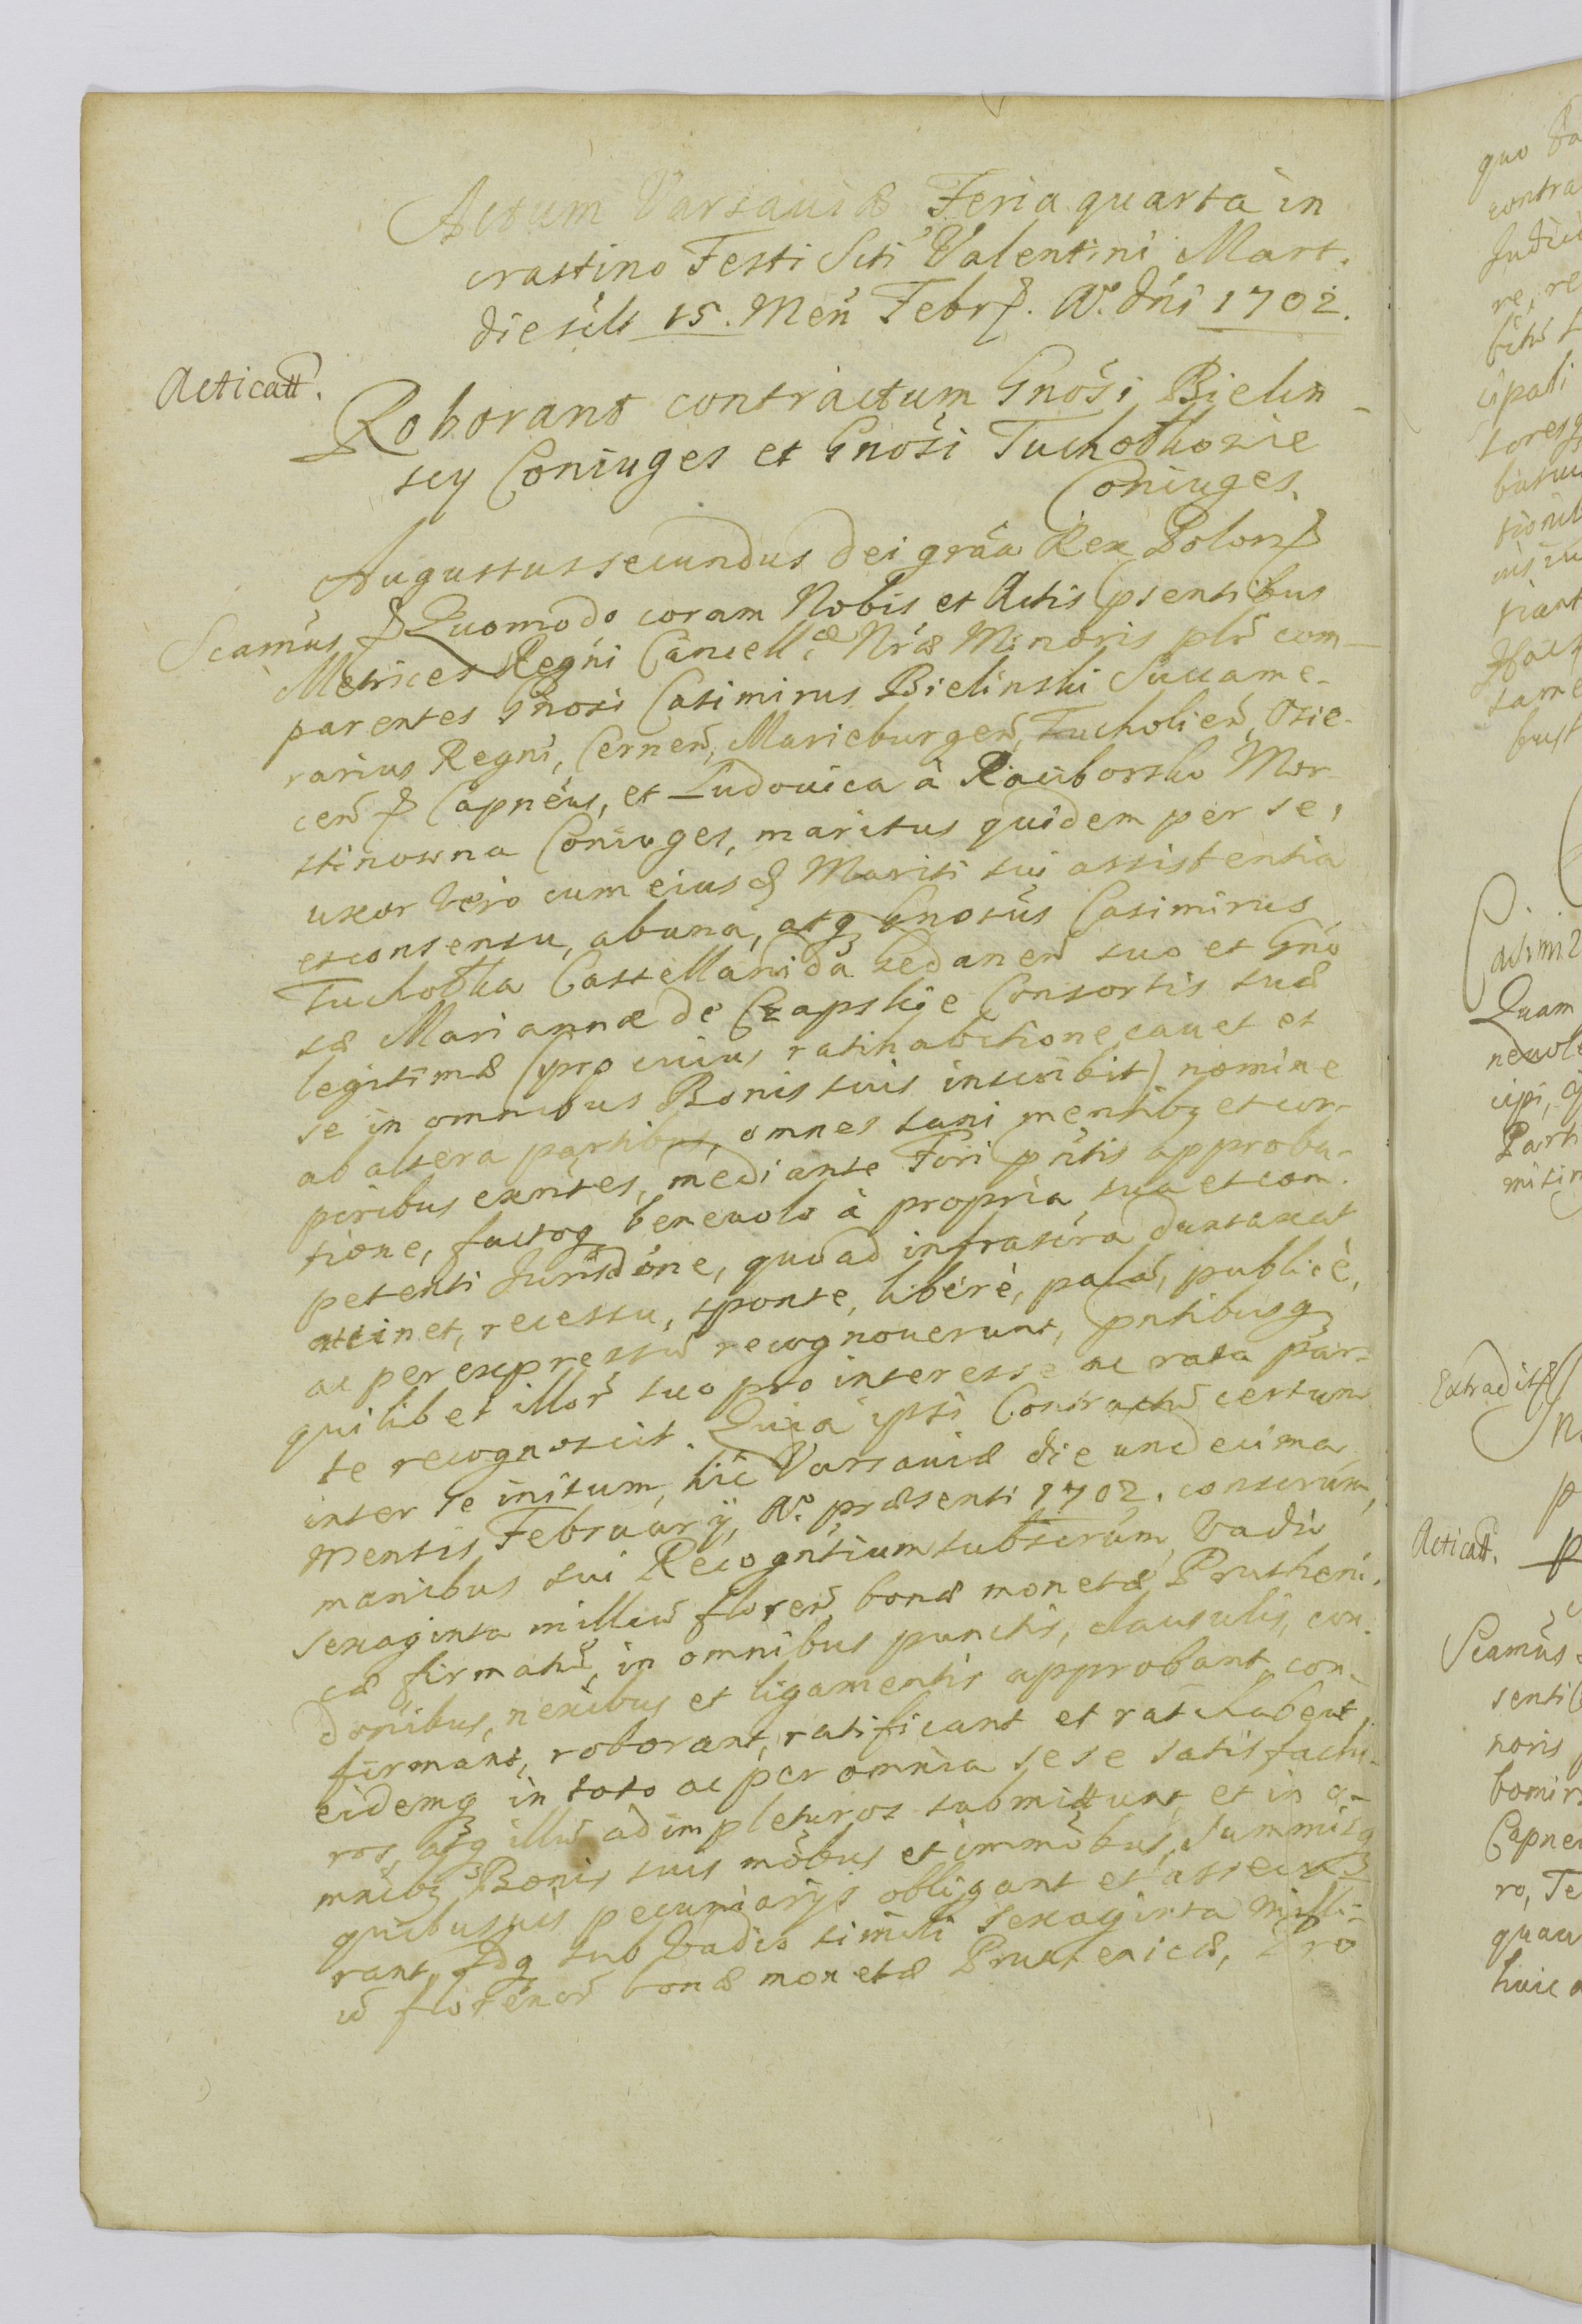 Actum Varsaviæ Feria quarta in
crastino Festi Scti Valentini Mart.
die scilt 15. Men̄ Febr. Ao. dn̄i 1702.
Acticatt.
Roborant contractum Gnōsi Bielin-
scy Coniuges et Gnōsi Tuchołkowie
Coniuges.
Augustus secundus Dei grāa Rex Polon
Scamūs Quomodo coram Nobis et Actis psentibus
Metrices Regni Cancellæ Nræ Minoris plr̄ com-
parentes Gnōsi Casimirus Bielinski Succame-
rarius Regni, Cernen̄, Marieburgen̄, Tucholien̄, Osie-
cen̄ Capnēus, et Ludovica à Raciborsko Mor-
stinowna Coniuges, maritus quidem per se,
uxor vero cum eiusd Mariti sui assistentia
et consensu, ab una, atq Gnosūs Casimirus
Tuchołka Castellanida Gedanen̄ suo et Gnō
sæ Mariannæ de Czapskie Consortis suæ
legitimæ (pro cuius ratihabitione cavet et
se in omnibus Bonis suis inscribit) nomine
ab altera partibus, omnes sani mentibq et cor-
poribus exn̄tes, mediante Fori pn̄tis approba-
tione, factoq benevolo à propria sua et com-
petenti Jurisdōne, quoad infrascra duntaxat
attinet, recessu, sponte, liberè, palā, publicè,
ac per expressū recognoverunt, pntibusq
quilibet illor̄ suo pro interesse ac rata par-
te recognoscit. Quia ipsi Contractū certum
inter se initum, hic Varsaviæ die undecima
Mensis February, Ao. præsenti 1702. conscrūm,
manibus sui Recogn̄tium subscrūm, Vadio
sexaginta milliū floren̄, bonæ monetæ Prutheni-
cæ firmatū, in omnibus punctis, clausulis, con-
dōnibus, nexibus et ligamentis approbant, con-
firmant, roborant, ratificant et ratihabent,
eidemq in toto ac per omnia sese satisfactu-
ros, atq illū adimpleturos submittunt, et in o-
mnibq Bonis suis mōbus et immōbus, summisq
quibusvis pecuniarys obligant et assecu-
rant, Idq sub Vadio simili sexaginta milli-
ū florenor̄ bonæ monetæ Pruthenicæ, Pro